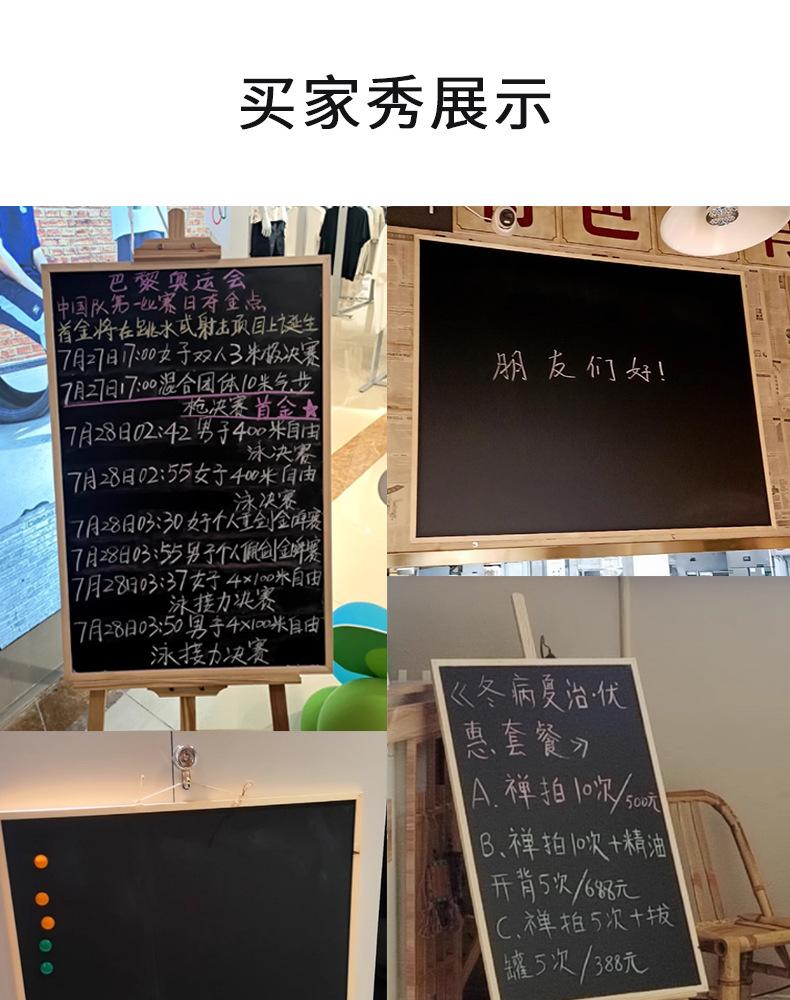 买家秀展示
巴黎奥运会
中国队第一比赛日夺金点
首金将在跳水或射击项目上诞生
7月27日17:00女子双人3米板决赛
7月27日17:00混合团体10米气步
枪决赛首金★
7月28日02:42男子400米自由
泳决赛
7月28日02:55女子400米自由
泳决赛
7月28日03:30女子个人重剑金牌赛
7月28日03:55男子个人佩剑金牌赛
7月28日03:37女子4×100米自由
泳接力决赛
7月28日03:50男子4×100米自由
泳接力决赛
色
朋友们好!
《冬病夏治·优
惠套餐》
A.禅拍10次/500元
B.禅拍10次+精油
开背5次/688元
C.禅拍5次+拔
罐5次/388元